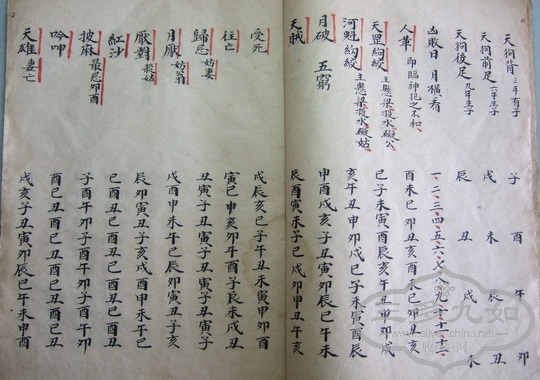 天狗背 三年有子 子 酉 午 卯
天狗前足 六年生子 戌 未 辰 丑
天狗後足 九年生子 辰 丑 戌 未
凶敗日 月橫看 一、二、三、四、五、六、七、八、九、十、十一、十二
人暈 即臨神犯之不和 酉未巳卯丑亥
天罡絢絞 主懸梁投水礙公 巳子未寅酉辰亥午丑申卯戌
河魁絢絞 主懸梁投水礙姑 亥午丑申卯戌巳子未寅酉辰
月破 五窮 申酉戌亥子丑寅卯辰巳午未
天賊
受死 戌辰亥巳子午丑未寅申卯酉
往亡 寅巳申亥卯午酉子辰未戌丑
歸忌 妨妻 丑寅子丑寅子丑寅子丑寅子
月厭 妨翁 戌酉申未午巳辰卯寅丑子亥
厭對 殺姑 辰卯寅丑子亥戌酉申未午巳
紅沙 酉巳丑酉巳丑酉巳丑酉巳丑
披麻 最忌卯酉 子酉午卯子酉午卯子酉午卯
吟呻 酉巳丑酉巳丑酉巳丑酉巳丑
天雄 妻亡 戌亥子丑寅卯辰巳午未申酉
三彩九如
www.sjiuu.china.net.cn
收藏网